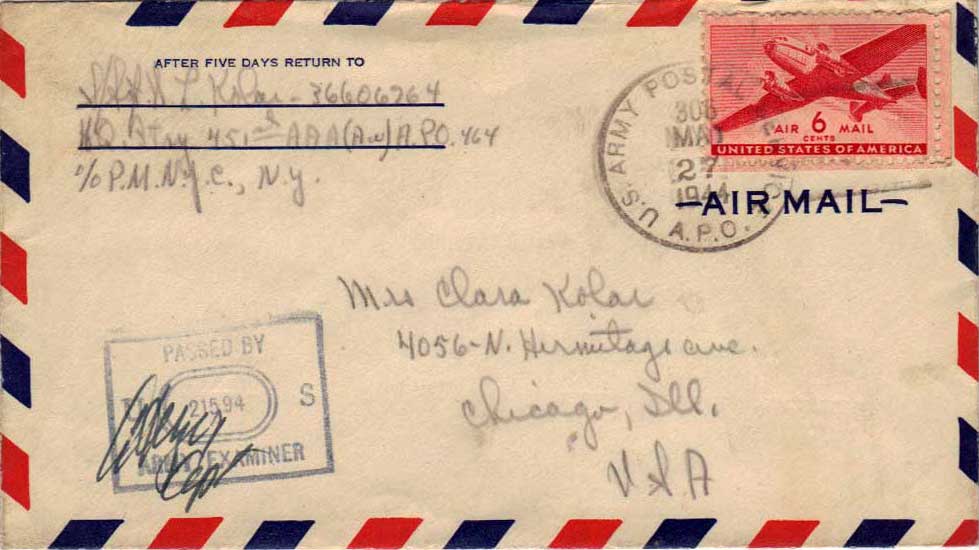 AFTER FIVE DAYS RETURN TO
L Kolar - 36606764
HQ Btry 451st AAA (AW) A.P.O. 464
c/o P.M. N.Y.C., N.Y.
U.S. ARMY POSTAL
A.P.O.
308
MAY
27
1944
AIR 6 MAIL
CENTS
UNITED STATES OF AMERICA
AIR MAIL
Mrs Clara Kolar
4056-N. Hermitage ave.
Chicago, Ill.
USA
PASSED BY
21594 S
ARMY EXAMINER
Capt